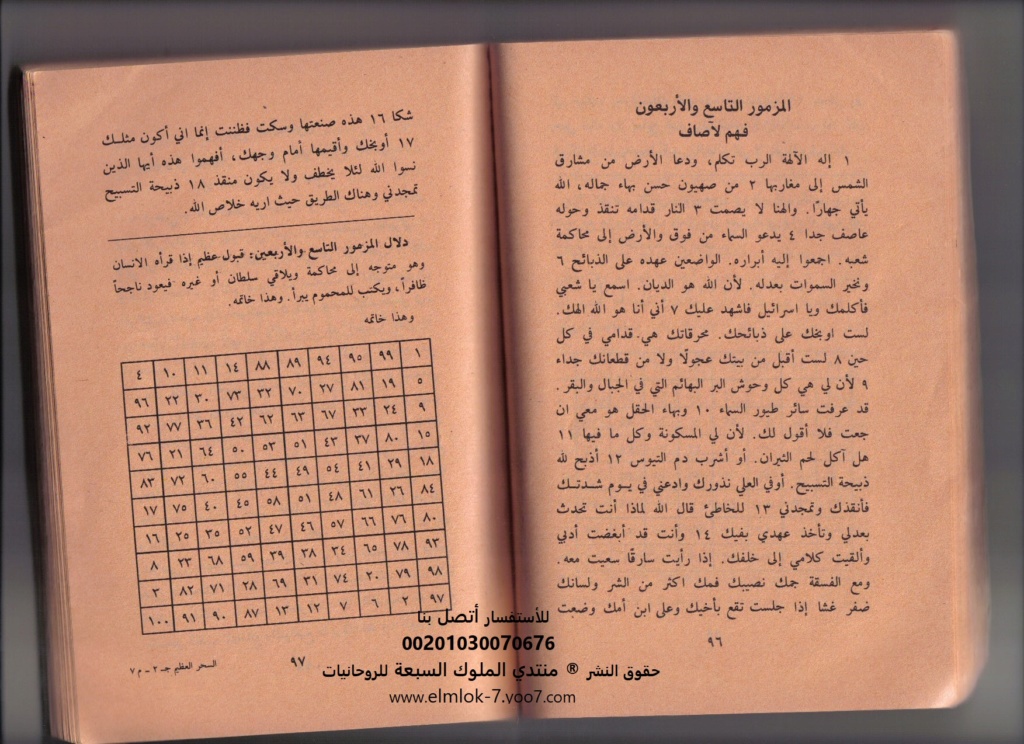 المزمور التاسع والأربعون
فهم لآصاف
١ إله الآلهة الرب تكلم، ودعا الأرض من مشارق
الشمس إلى مغاربها ٢ من صهيون حسن بهاء جماله، الله
يأتي جهارًا. والهنا لا يصمت ٣ النار قدامه تنقذ وحوله
عاصف جدا ٤ يدعو السماء من فوق والأرض إلى محاكمة
شعبه. اجمعوا إليه أبراره. الواضعين عهده على الذبائح ٦
وتخبر السموات بعدله. لأن الله هو الديان. اسمع يا شعبي
فأكلمك ويا اسرائيل فاشهد عليك ٧ أني أنا هو الله الهك.
لست اوبخك على ذبائحك. محرقاتك هي قدامي في كل
حين ٨ لست أقبل من بيتك عجولًا ولا من قطعانك جداء
٩ لأن لي هي كل وحوش البر البهائم التي في الجبال والبقر.
قد عرفت سائر طيور السماء ١٠ وبهاء الحقل هو معي ان
جعت فلا أقول لك. لأن لي المسكونة وكل ما فيها ١١
هل آكل لحم الثيران. أو أشرب دم التيوس ١٢ أذبح لله
ذبيحة التسبيح. أوفي العلي نذورك وادعني في يوم شدتك
فأنقذك وتمجدني ١٣ للخاطئ قال الله لماذا أنت تحدث
بعدلي وتأخذ عهدي بفيك ١٤ وأنت قد أبغضت أدبي
وألقيت كلامي إلى خلفك. إذا رأيت سارقًا سعيت معه.
ومع الفسقة جمك نصيبك فمك اكثر من الشر ولسانك
ضفر غشا إذا جلست تقع بأخيك وعلى ابن أمك وضعت
٩٦
شكا ١٦ هذه صنعتها وسكت فظننت إنما اني أكون مثلك
١٧ أوبخك وأقيمها أمام وجهك، أفهموا هذه أيها الذين
نسوا الله لئلا يخطف ولا يكون منقذ ١٨ ذبيحة التسبيح
تمجدني وهناك الطريق حيث اريه خلاص الله.
دلال المزمور التاسع والأربعين: قبول عظيم إذا قرأه الانسان
وهو متوجه إلى محاكمة ويلاقي سلطان أو غيره فيعود ناجحاً
ظافراً، ويكتب للمحموم يبرأ. وهذا خاتمه.
وهذا خاتمه
١ ٩٩ ٩٥ ٩٤ ٨٩ ٨٨ ١٤ ١١ ١٠ ٤
٥ ١٩ ٨١ ٢٧ ٧٠ ٣٢ ٧٣ ٣٠ ٢٢ ٩٦
٩ ٢٤ ٣٣ ٦٧ ٦٣ ٦٢ ٤٢ ٣٦ ٧٧ ٩٢
١٥ ٨٠ ٣٧ ٤٣ ٥١ ٥٣ ٥٠ ٦٤ ٢١ ٧٦
١٨ ٢٩ ٤١ ٥٤ ٤٩ ٤٤ ٥٥ ٦٠ ٧٢ ٨٣
٨٤ ٢٦ ٦١ ٤٨ ٥١ ٥٨ ٤٥ ٤٠ ٧٥ ١٧
٨٠ ٧٦ ٦٦ ٥٧ ٤٦ ٤٧ ٥٢ ٣٥ ٢٥ ١٦
٩٣ ٧٨ ٦٥ ٣٤ ٣٨ ٣٩ ٥٩ ٦٨ ٢٣ ٨
٩٨ ٧٩ ٢٠ ٧٤ ٣١ ٦٩ ٢٨ ٧١ ٨٢ ٣
٩٧ ٢ ٦ ٧ ١٢ ١٣ ٨٧ ٩٠ ٩١ ١٠٠
٩٧
السحر العظيم جـ ٢ - م ٧
للأستفسار أتصل بنا
00201030070676
حقوق النشر ® منتدي الملوك السبعة للروحانيات
www.elmlok-7.yoo7.com